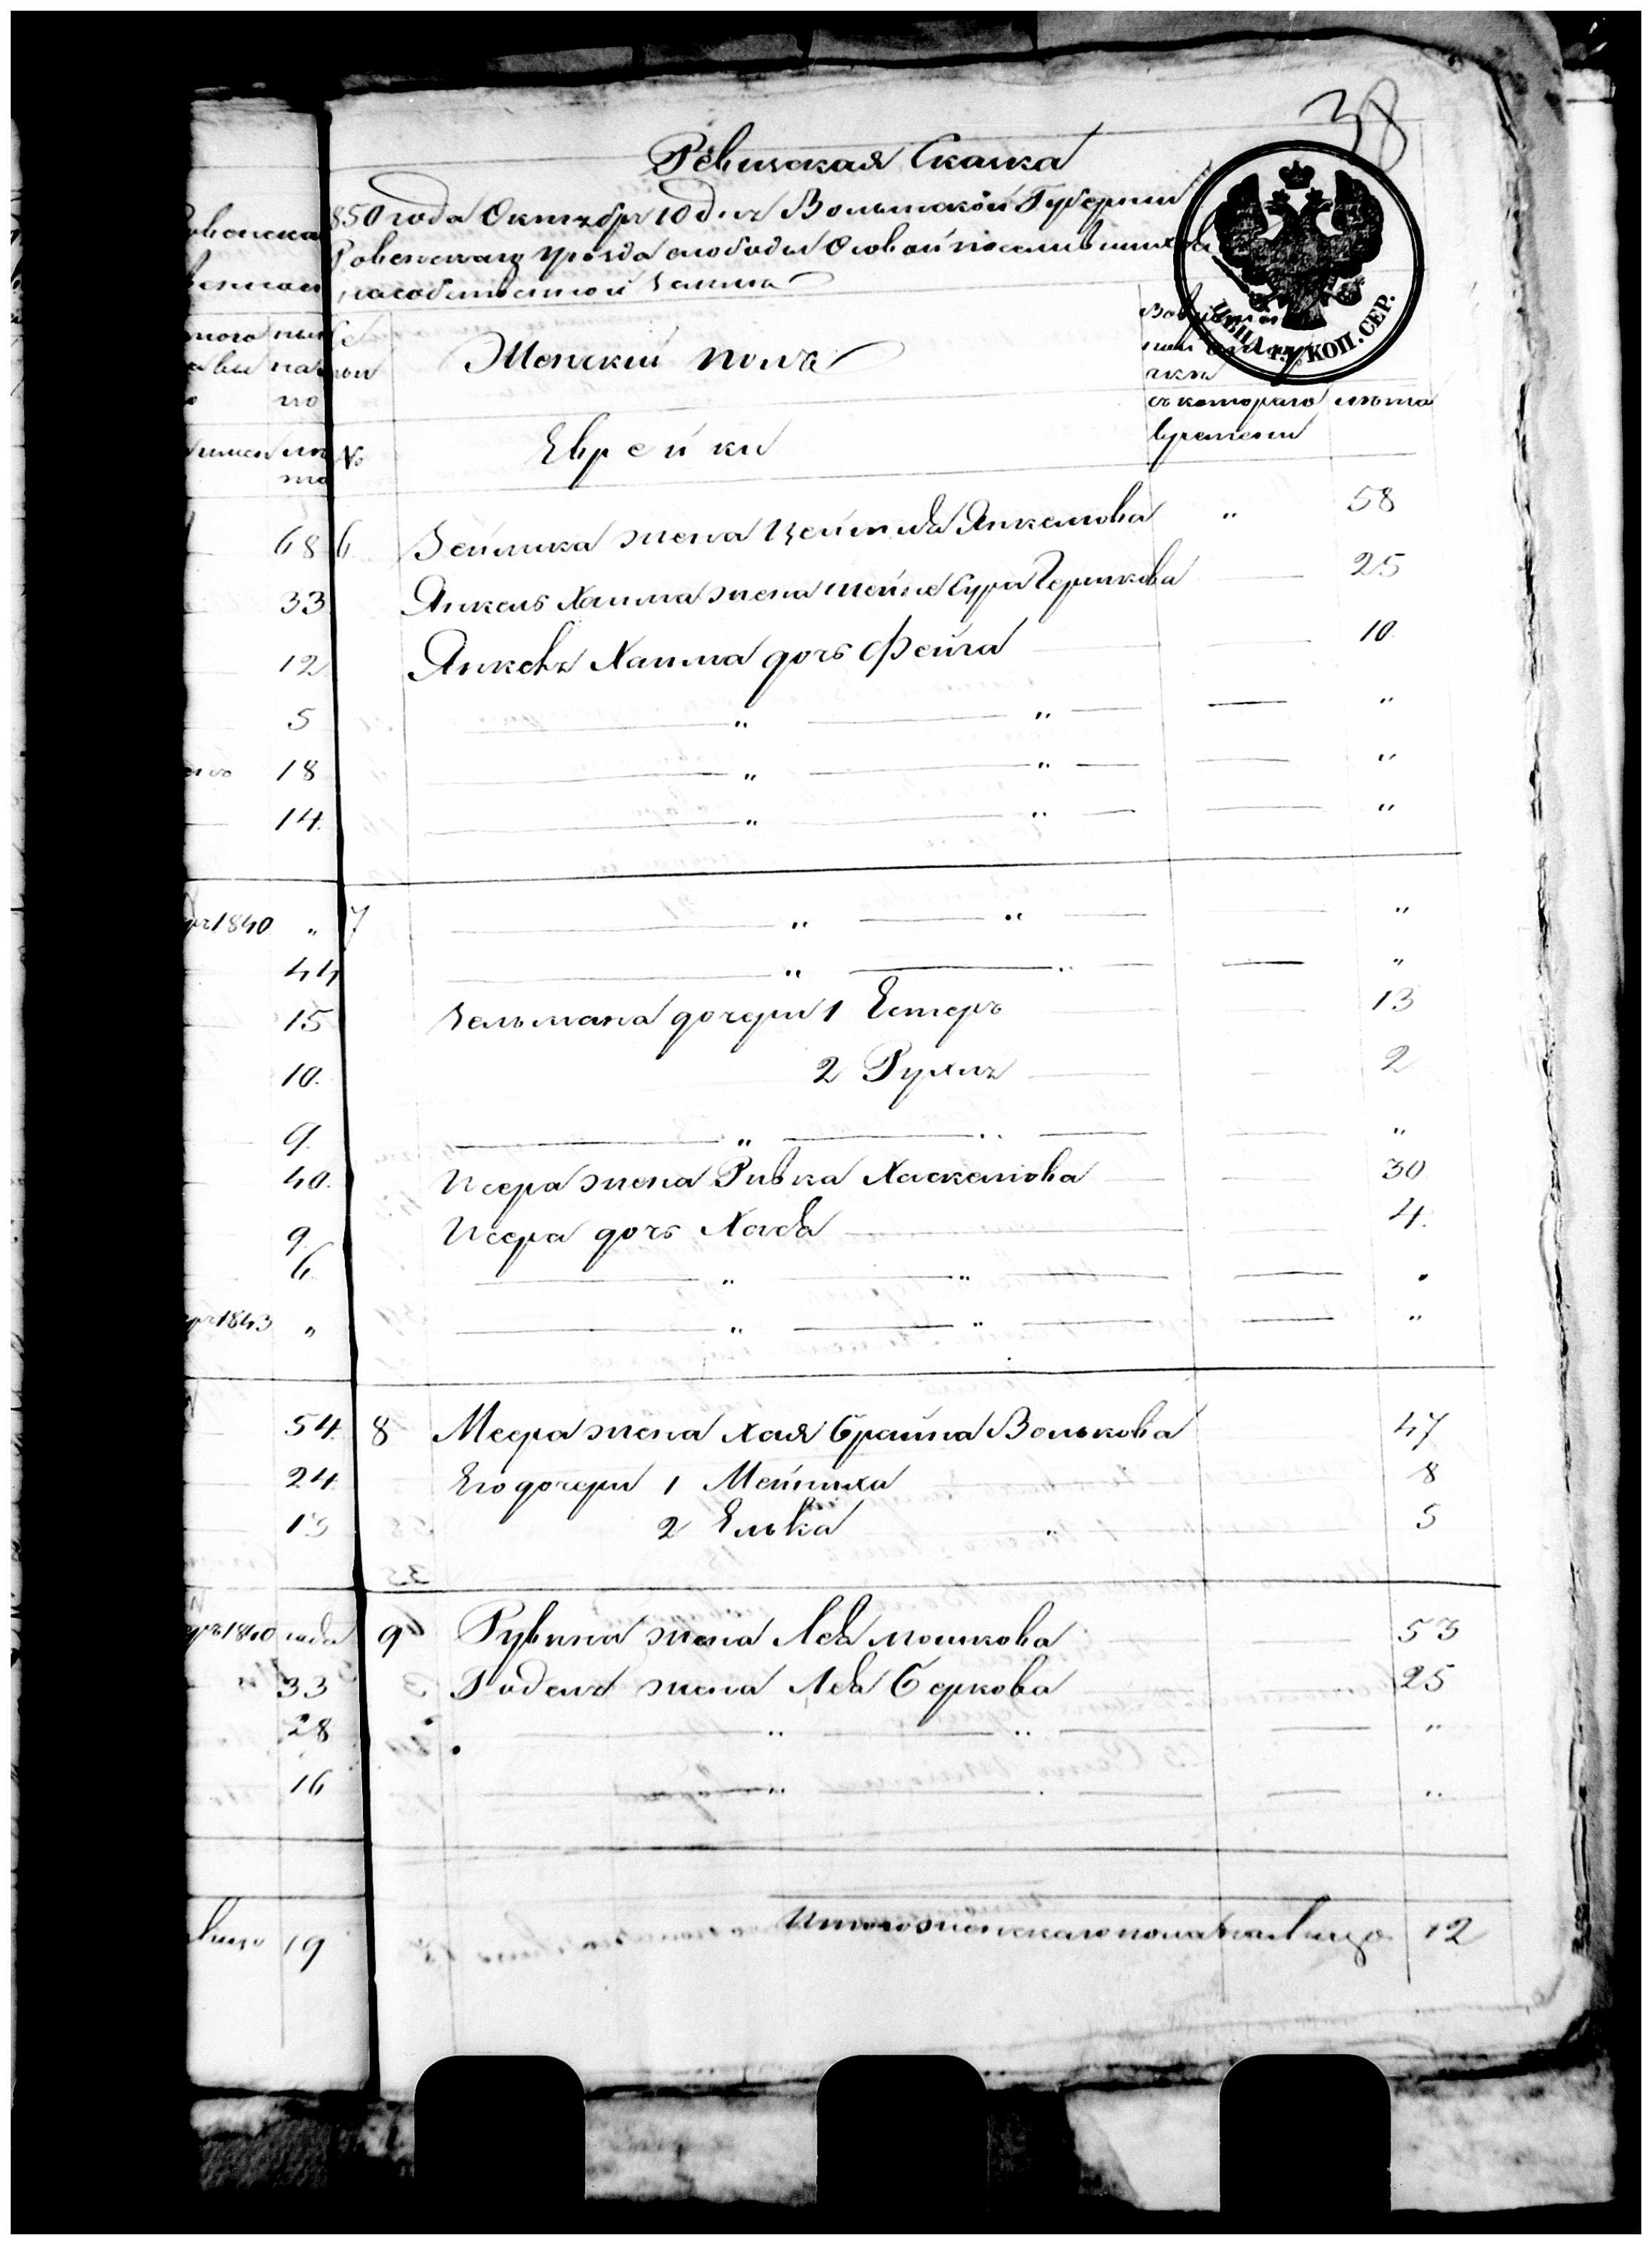 38
Ревизская Сказка
1850 года Октября 10 дня Волынской Губернии
Ровенскаго Уезда слободы Осовой поселившихся
на собственной земле
Женский полъ
съ котораго лета
времени
№ Еврейки
68 6 Зейлика жена Цейтля Янкелова " 58
33 Янкель Хаима жена Шейне Сура Гершкова 25
12 Янкель Хаима дочь Фейга 10
5 " " "
18 " " "
14 " " "
1840 " 7 " " "
44 " " "
15 Зельмана дочери 1 Естеръ 13
10 2 Рухля 2
9 " " "
40 Исера жена Ривка Хаскелова 30
9 Исера дочь Хая 4
6 " "
1843 " " " "
54 8 Меера жена Хая Брайна Волькова 47
24 Его дочери 1 47 8
13 2 Елька 5
1840 года 9 Рувина жена Лея Мошкова 53
33 жена Лея Беркова 25
28 " " "
16 " "
19 Итого женскаго пола на лицо 12